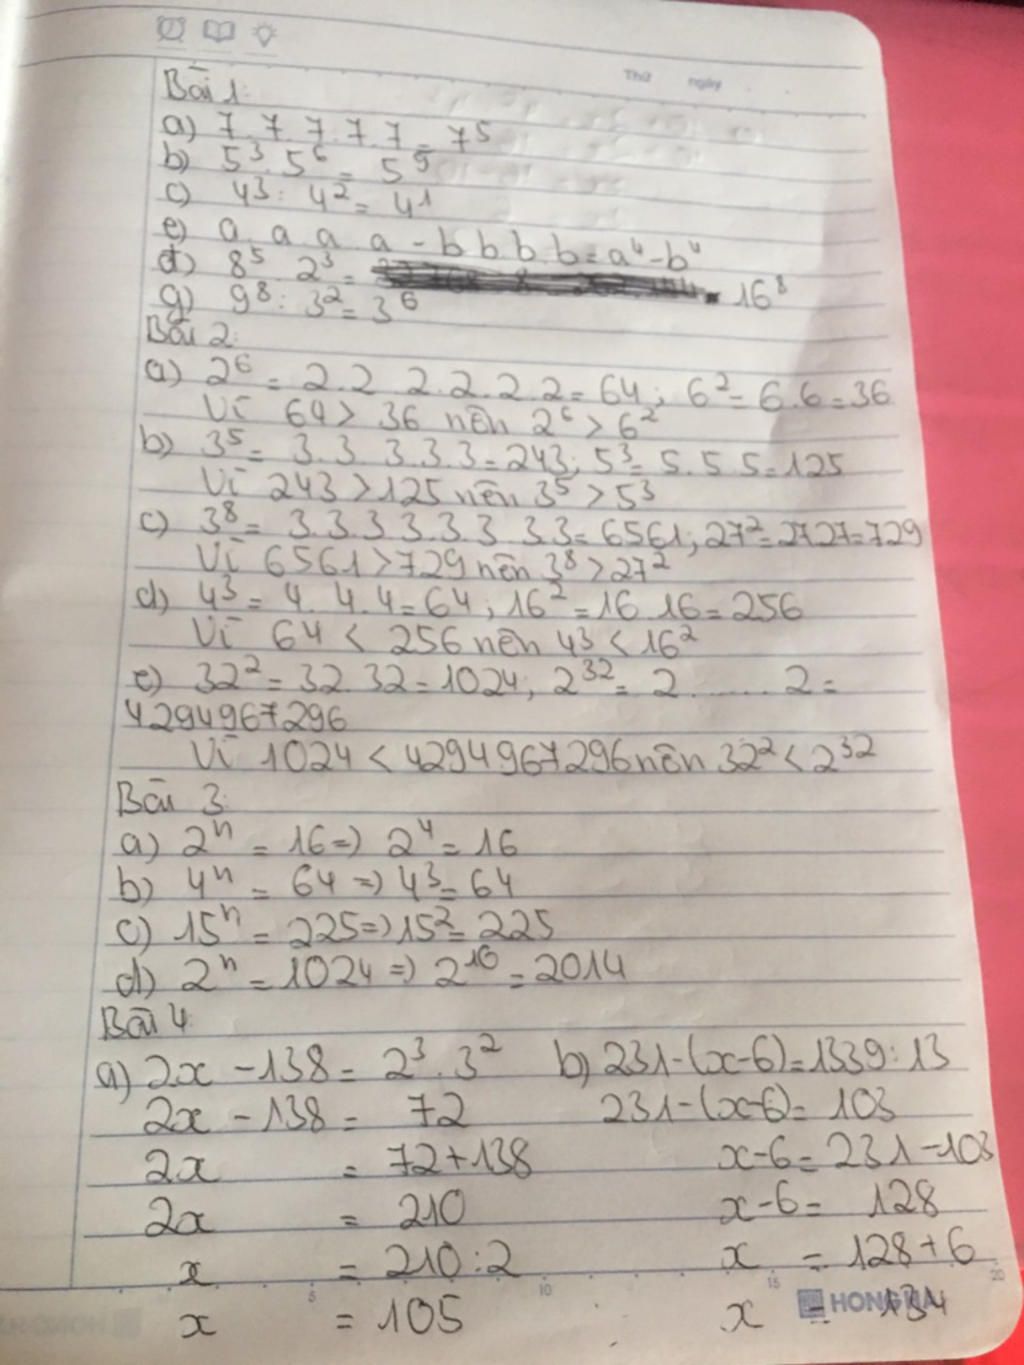 Thứ ngày
Bài 1:
a) 7.7.7.7.7 = 7⁵
b) 5³.5⁶ = 5⁹
c) 4³: 4² = 4¹
e) a.a.a.a - b.b.b.b = a⁴-b⁴
d) 8⁵.2³ = 16⁸
g) 9⁸: 3² = 3⁶
Bài 2:
a) 2⁶ = 2.2.2.2.2.2 = 64; 6² = 6.6 = 36
Vì 64 > 36 nên 2⁶ > 6²
b) 3⁵ = 3.3.3.3.3 = 243; 5³ = 5.5.5 = 125
Vì 243 > 125 nên 3⁵ > 5³
c) 3⁸ = 3.3.3.3.3.3.3.3 = 6561; 27² = 27.27 = 729
Vì 6561 > 729 nên 3⁸ > 27²
d) 4³ = 4.4.4 = 64; 16² = 16.16 = 256
Vì 64 < 256 nên 4³ < 16²
e) 32² = 32.32 = 1024; 2³² = 2.......2 =
4294967296
Vì 1024 < 4294967296 nên 32² < 2³²
Bài 3:
a) 2ⁿ = 16 => 2⁴ = 16
b) 4ⁿ = 64 => 4³ = 64
c) 15ⁿ = 225 => 15² = 225
d) 2ⁿ = 1024 => 2¹⁰ = 2014
Bài 4:
a) 2x - 138 = 2³.3² b) 231-(x-6) = 1339:13
2x - 138 = 72 231-(x-6) = 103
2x = 72+138 x-6 = 231-103
2x = 210 x-6 = 128
x = 210:2 x = 128+6
x = 105 x = 134
5 10 15 20
HONG HA